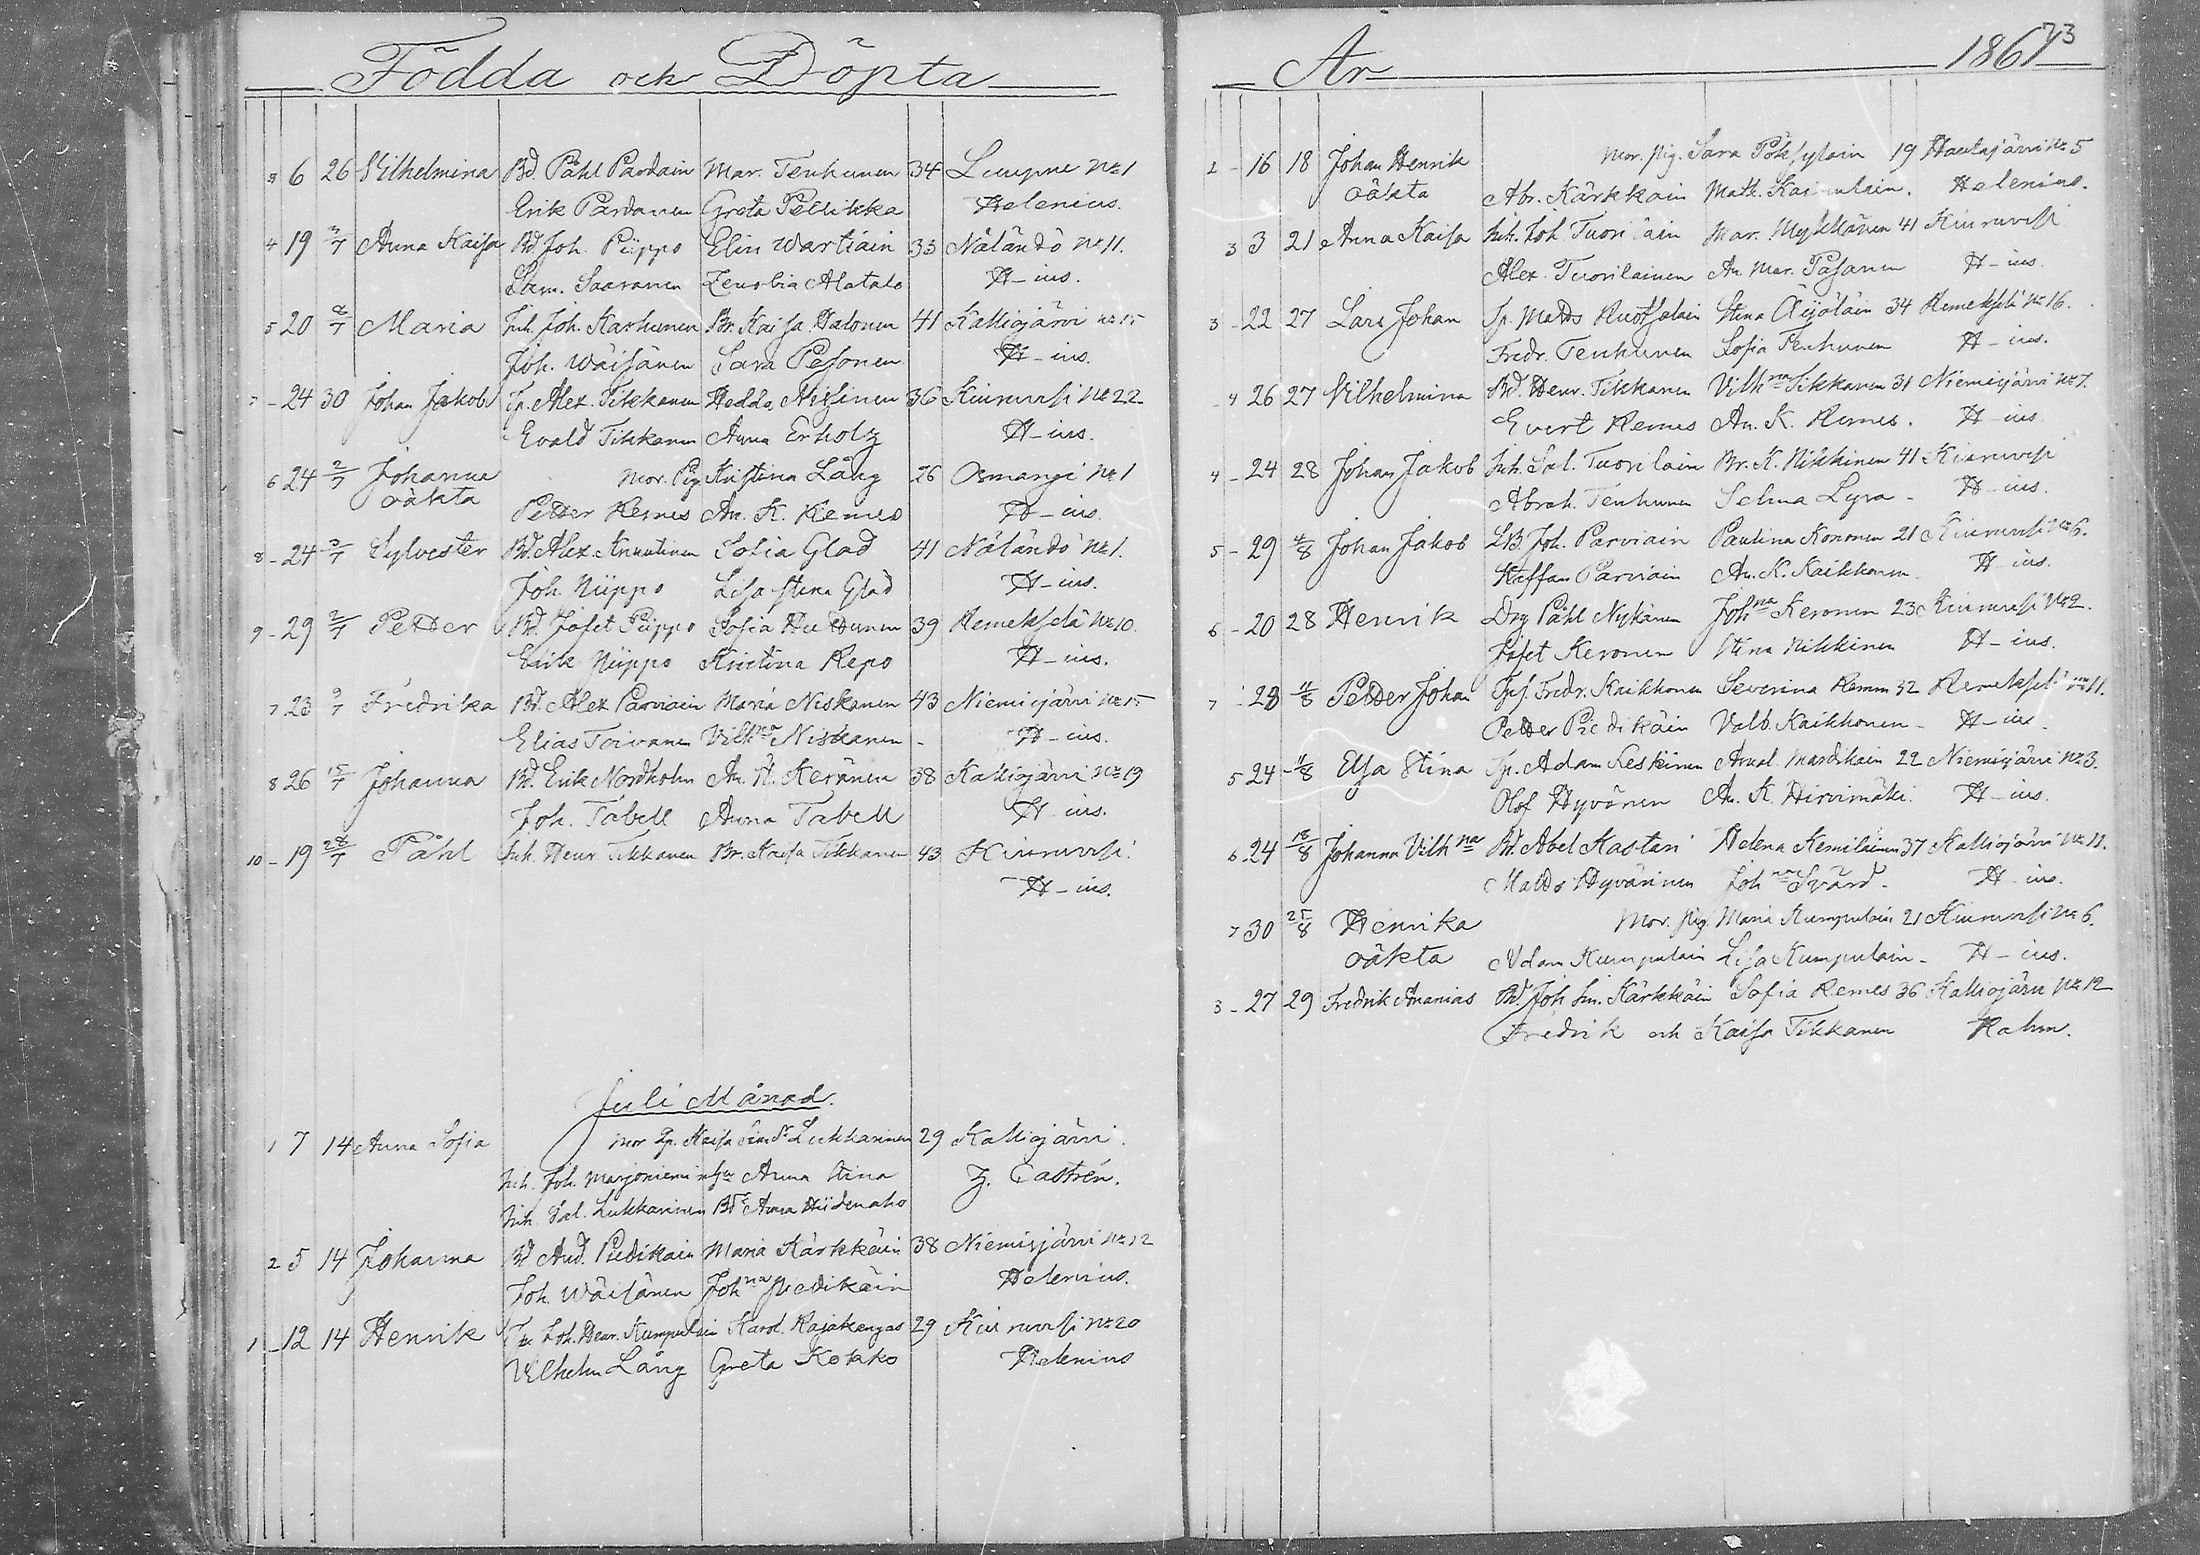 Födda och Döpta
3 6 26 Vilhelmina Bd. Påhl Pardain Mar. Tenhunen 34 Luupne No 1
Erik Pardanen Greta Pellikka Helenius.
4 19 2/7 Anna Kaisa Bd Joh. Piippo Elin Wartiain 33 Näländö No 11.
Sam. Saaranen Zenobia Alatalo H-ius.
5 20 2/7 Maria Inh. Joh. Karhunen Br. Kaisa Halonen 41 Kalliojärvi No 15
Joh. Wäisänen Sara Pesonen H-ius.
7 - 24 30 Johan Jakob Tp. Alex. Tikkanen Hedda Niskinen 36 Kiuruvesi No 22
Evald Tikkanen Anna Erholtz H-ius.
6 24 2/7 Johanna Mor. Pig. Kristina Lång 26 Osmangi No 1
oäkta Petter Remes An. K. Remes H-ius.
8 - 24 2/7 Sylvester Bd. Alex. Knuutinen Sofia Glad 41 Näländö No 1.
Joh. Niippo Lisa Stina Glad H-ius.
9 - 29 2/7 Petter Bd. Jafet Piippo Sofia Huttunen 39 Remekselä No 10.
Erik Niippo Kristina Repo H-ius.
7 23 9/7 Fredrika Bd. Alex Parviain Maria Niskanen 43 Niemisjärvi No 15
Elias Toivanen Vilhna Niskanen - H-ius.
8 26 15/7 Johanna Bd. Erik Nordholm An. H. Keränen 38 Kalliojärvi No 19
Joh. Tabell Anna Tabell H-ius.
10 - 19 28/7 Påhl Inh. Henr Tikkanen Br. Kaisa Tikkanen 43 Kiuruvesi.
H-ius.
Juli Månad.
1 7 14 Anna Sofia Mor Lukkarinen 29 Kalliojärvi.
Inh. Joh. Marjoniemi Anna Z. Castrén.
Inh. Sal. Lukkarinen Anna Hiidenaho
2 5 14 Johanna Bd And. Piedikain Maria Kärkkäin 38 Niemisjärvi No 12
Joh. Wäisänen Johna Piedikäin Helenius.
1 - 12 14 Henrik Joh. Henr. Kumpulain Karol. Rajakangas 29 Kiuruvesi No 20
Vilhelm Lång Greta Kokko Helenius
År 1861 73
2 - 16 18 Johan Henrik Mor. Pig. Sara 19 Hautajärvi No 5
oäkta Abr. Kärkkäin Math. Helenius.
3 3 21 Anna Kaisa Inh. Joh. Tuorilain Mar. Mykkänen 41 Kiuruvesi
Alex. Tuorilainen An. Mar. Pasanen H-ius
3 - 22 27 Lars Johan Sp. Matts Ruotsalain Stina Äijälain 34 Remekselä No 16.
Fredr. Tenhunen Sofia Tenhunen H-ius.
4 26 27 Vilhelmina Bd. Henr. Tikkanen Vilhna Tikkanen 31 Niemisjärvi No 7.
Evert Remes An. K. Remes. H-ius
4 - 24 28 Johan Jakob Inh. Sal. Tuorilain Br. K. Nikkinen 41 Kiuruvesi
Abrah. Tenhunen Selma Lyra - H-ius.
5 - 29 4/8 Johan Jakob LB. Joh. Parviain Paulina Kononen 21 Kiuruvesi No 6.
Staffan Parviain An. K. Kaikkonen H-ius.
6 - 20 28 Henrik Drg Påhl Nykänen Johna Keronen 23 Kiuruvesi No 2.
Jafet Keronen Stina Nikkinen H-ius.
7 - 28 4/8 Petter Johan Fredr. Kaikkonen Severina Remes 32 Remekselä No 11.
Petter Piedikäin Valb. Kaikkonen - H-ius.
5 24 - 4/8 Elsa Stina Sp. Adam Leskinen Amal. Mardikain 22 Niemisjärvi No 3.
Olof Hyvönen An. K. Hirvimäki. H-ius.
6 - 24 18/8 Johanna Vilhna Bd. Abel Kastari Helena Kemiläinen 37 Kalliojärvi No 11.
Matts Hyvärinen Johna Svärd. H-ius.
7 30 25/8 Henrika Mor. Pig. Maria Kumpulain 21 Kiuruvesi No 6.
oäkta Adam Kumpulain Lisa Kumpulain - H-ius.
8 - 27 29 Fredrik Ananias Bd. Joh. Sim. Kärkkäin Sofia Remes 36 Kalliojärvi No 12
Fredrik och Kaisa Tikkanen Rahm.